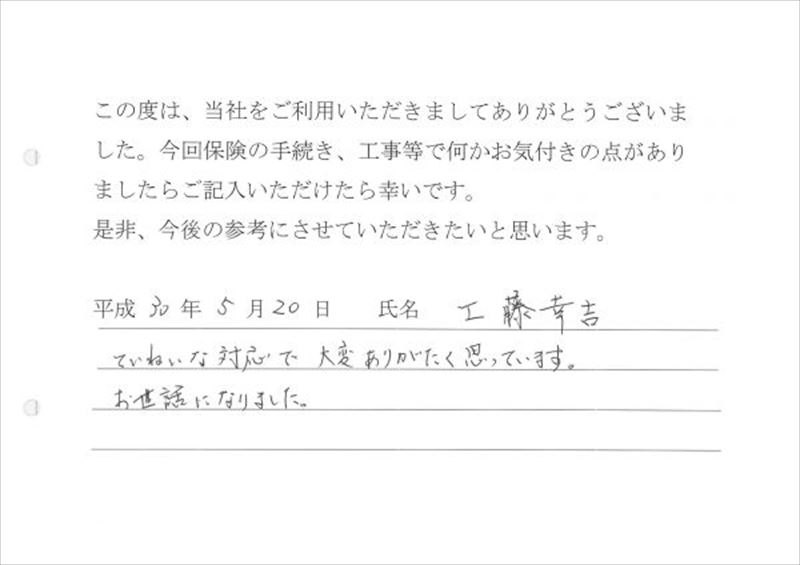 この度は、当社をご利用いただきましてありがとうございま
した。今回保険の手続き、工事等で何かお気付きの点があり
ましたらご記入いただけたら幸いです。
是非、今後の参考にさせていただきたいと思います。
平成 30 年 5 月 20 日 氏名 工藤幸吉
ていねいな対応で大変ありがたく思っています。
お世話になりました。